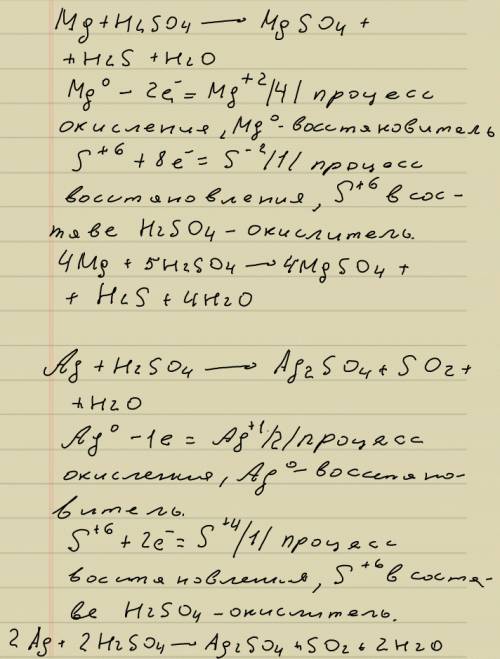 Mg + H₂SO₄ → MgSO₄ +
+ H₂S + H₂O
Mg⁰ - 2e⁻ = Mg⁺² /4/ процесс
окисления, Mg⁰ - восстановитель
S⁺⁶ + 8e⁻ = S⁻² /1/ процесс
восстановления, S⁺⁶ в сос-
таве H₂SO₄ - окислитель.
4Mg + 5H₂SO₄ → 4MgSO₄ +
+ H₂S + 4H₂O
Ag + H₂SO₄ → Ag₂SO₄ + SO₂ +
+ H₂O
Ag⁰ - 1e = Ag⁺¹ /2/ процесс
окисления, Ag⁰ - восстано-
витель.
S⁺⁶ + 2e⁻ = S⁺⁴ /1/ процесс
восстановления, S⁺⁶ в соста-
ве H₂SO₄ - окислитель.
2Ag + 2H₂SO₄ → Ag₂SO₄ + SO₂ + 2H₂O